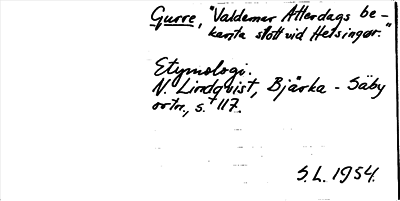 Gurre, "Valdemar Atterdags be-
kanta slott vid Helsingør."
Etymologi.
N. Lindqvist, Bjärka - Säby
ortn., s. 117.
S.L. 1954.